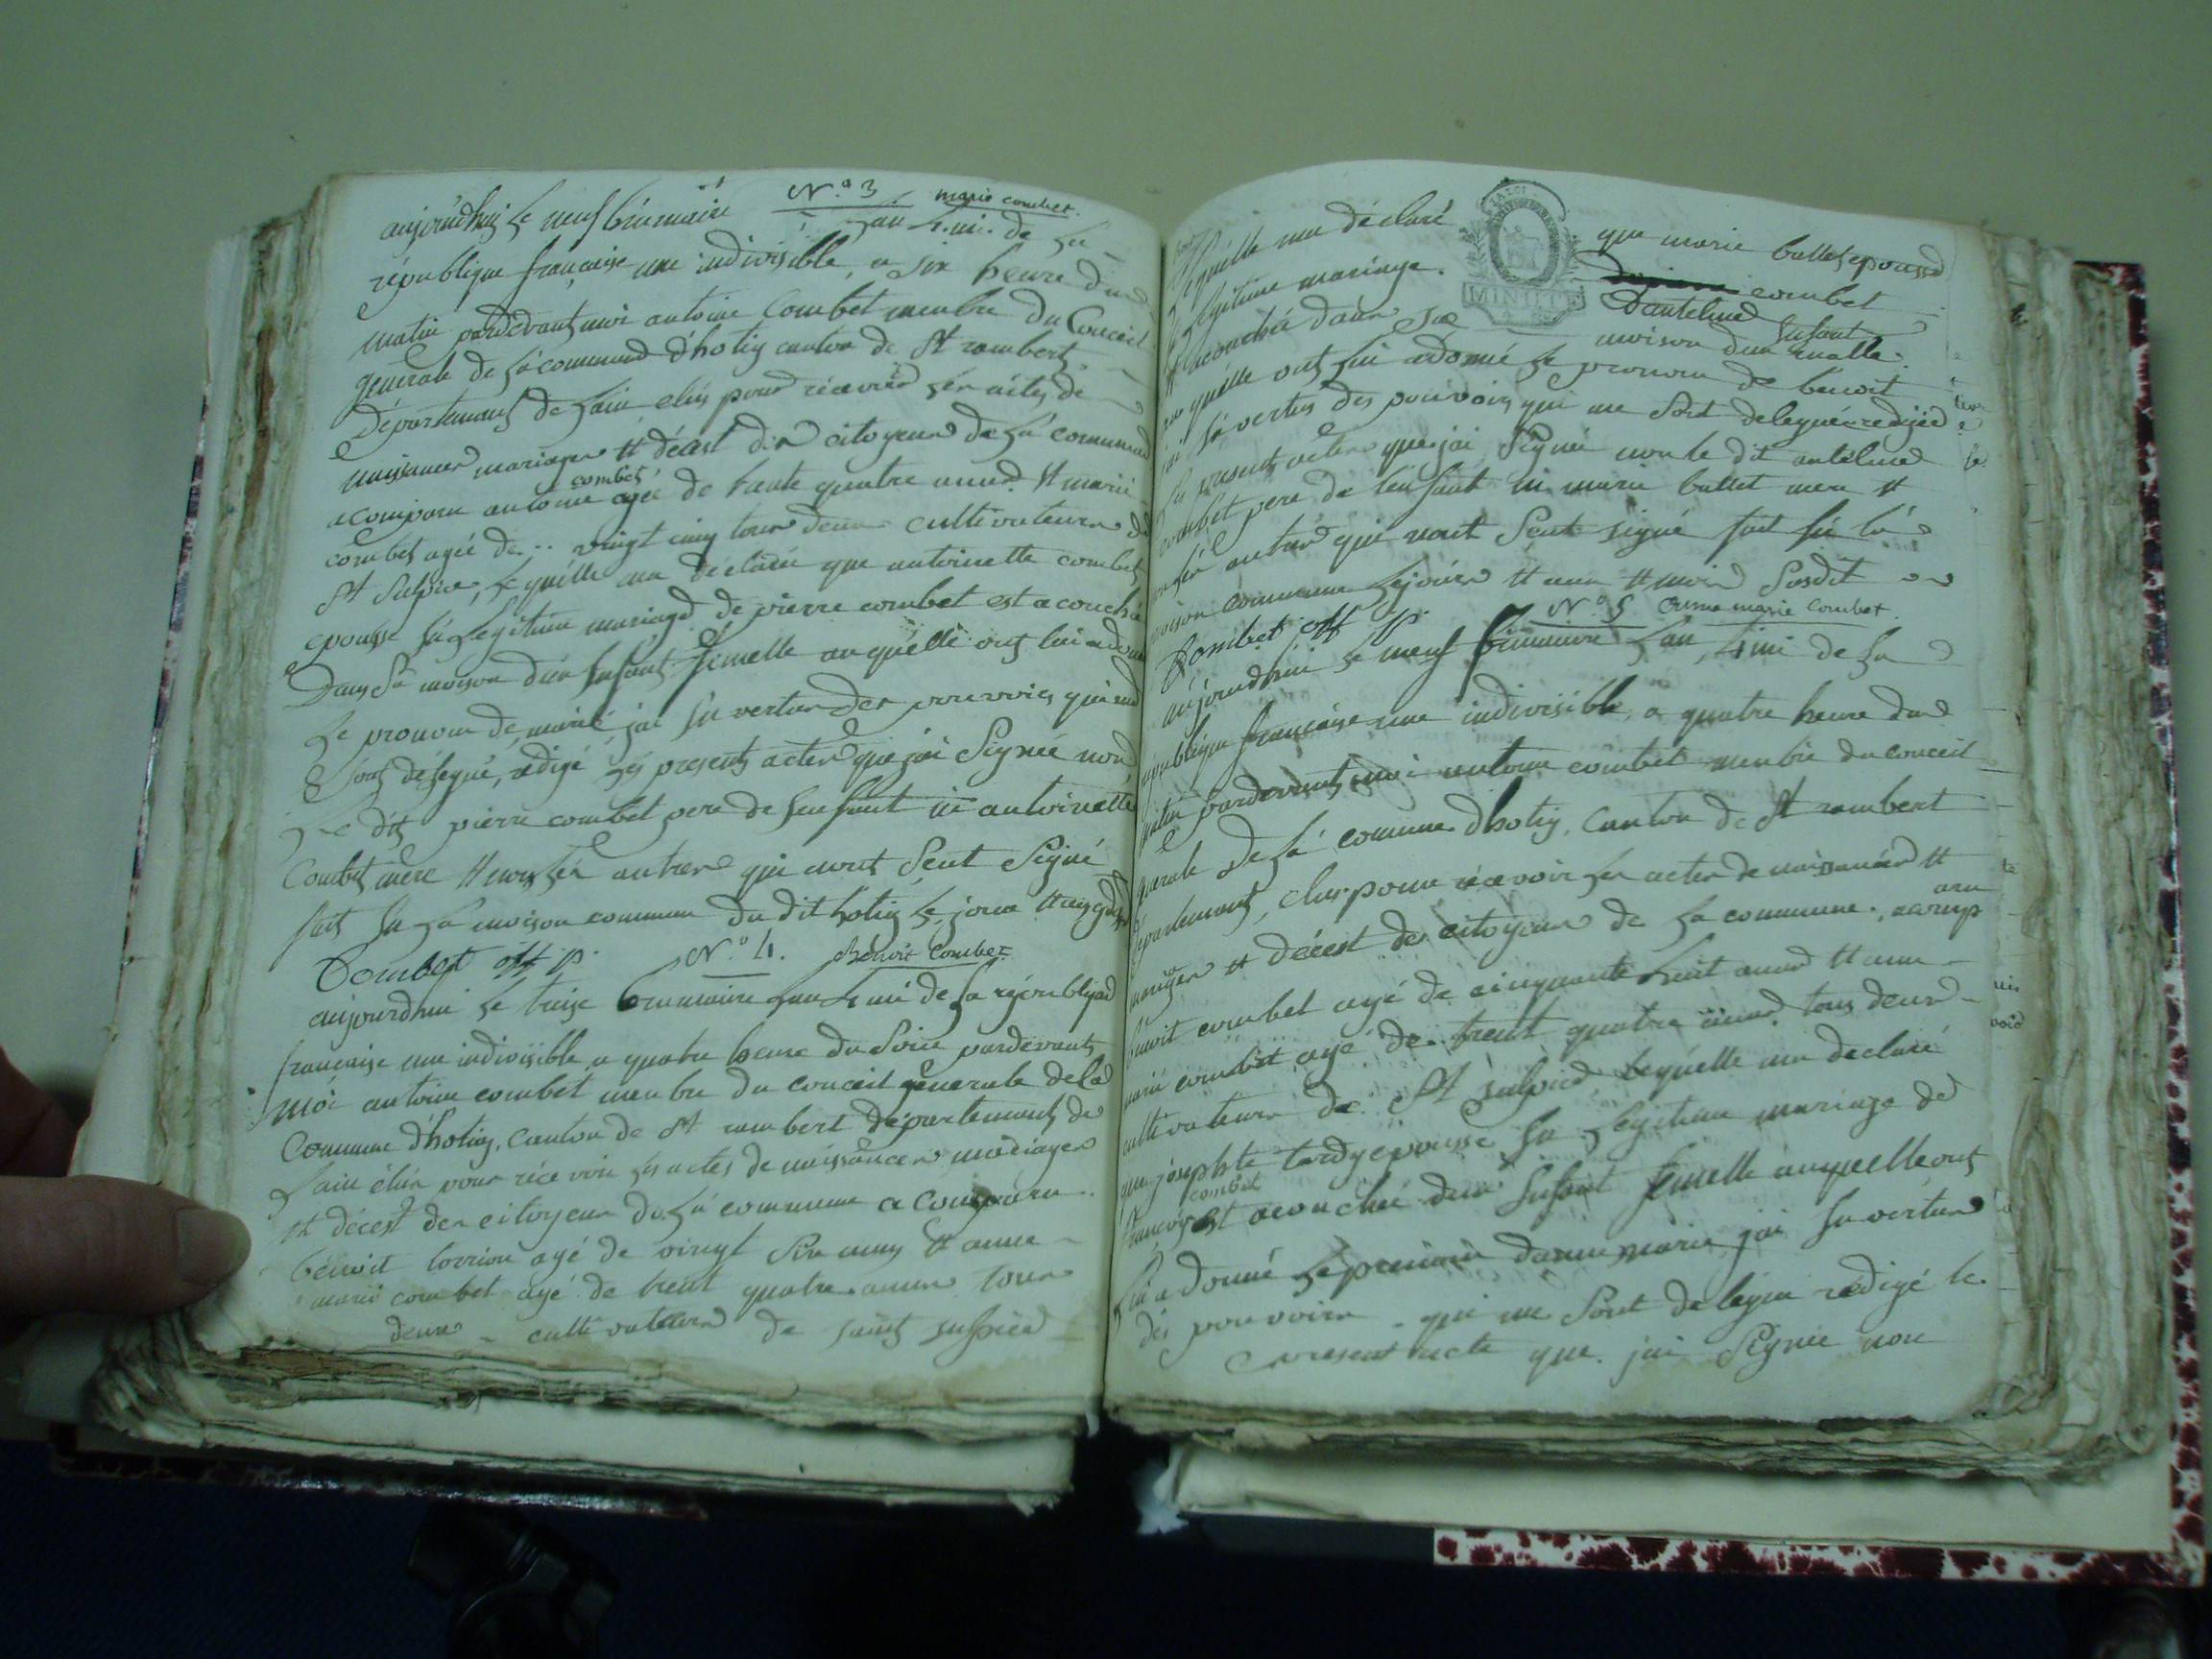 N.º 3 marie combet.
aujourdhuy le neuf brumaire lan 4.mi. de la
république française une indivisible, a six heure du
matin pardevant moi antoine Combet membre du Conceil
generale de la commune d'hotiy canton de St rambert
Departement de lain élus pour recevoir les actes de
naissances mariages et décest des citoyens de la commune
a comparu antoine combet agée de trante quatre annes et marie
combet agée de .. vingt cinq tous deux cultivateurs de
St Sulpice, lequélle ma déclaré que antoinette combet
epousse la legitime mariage de pierre combet est acouchée
Dans sa maison dun Enfant femelle auquélle ont lui a donné
le pronom de marie jai En vertue des pouvoirs qui me
sont délegué, rédigé les presents actes que jai Signée non
Le dit pierre combet pere de lenfant ni antoinette
Combet mère et nous les autres qui nont Seut Signé
fait En la maison commun du dit hotiy le jour et
Combet off p.
N.º 4. Benoit Combet
aujourdhui le treize brumaire lan 4 mi de la republique
française une indivisible a quatre heure du Soire pardevant
Moi antoine combet membre du conceil generale de la
Commune d'hotiy, Canton de St rambert departement de
Lain élus pour récevoir les actes de naissances mariages
et décest des citoyens de la commune a comparu
bénoit torrion agé de vingt six anns et anne
marie combet agé de trent quatre annes tous
deux cultivateurs de saint sulpice
lequélle ma déclaré que marie ballet epousse
legitime mariage. combet
Dantelme
est acouchée dans sa maison dun Enfant malle.
auquélle ont lui a donné le pronom de bénoit
jai En vertus des pouvoirs qui me Sont delegué redijée
les presents actes que jai Signée non le dit antelme
combet pere de lenfant ni marie ballet mere et
les autres qui nont Seut signé fait En la
maison commune le jour et ann et mois Susdit
Combet off p.
N.º 5 anne marie Combet
aujourdhui le neuf frimaire Lan, 4 mi de la
republique française une indivisible, a quatre heure du
matin pardevant moi antoine combet membre du conceil
generale de la commune dhotiy, Canton de St rambert
departement, elus pour récevoir les actes de naissances et
mariages et décest des citoyens de la commune. acomp
aru
benoit combet agé de cinquante huit annes et anne
marie combet agé de trent quatre annes tous deux
cultivateurs de St sulpice lequélle ma declaré
que josephte tardy épousse En legitime mariage de
françois combet est acouchée dun Enfant femelle auquelle ont
lui a donné le prenom danne marie jai En vertue
des pouvoirs qui me Sont delegue redigé le
present acte que jai Signée non